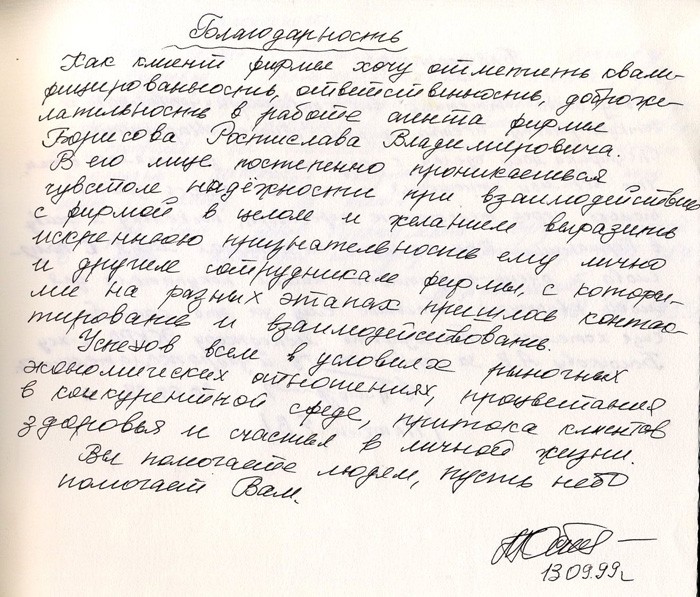 Благодарность
Как клиент фирмы хочу отметить квали-
фицированность, ответственность, доброже-
лательность в работе агента фирмы
Борисова Ростислава Владимировича.
В его лице постепенно проникаешься
чувством надёжности при взаимодействии
с фирмой в целом и желанием выразить
искреннюю признательность ему лично
и другим сотрудникам фирмы, с которы-
ми на разных этапах пришлось контак-
тировать и взаимодействовать.
Успехов всем в условиях рыночных
экономических отношениях, процветания
в конкурентной среде, притока клиентов
здоровья и счастья в личной жизни.
Вы помогаете людям, пусть небо
помогает Вам.
13.09.99г